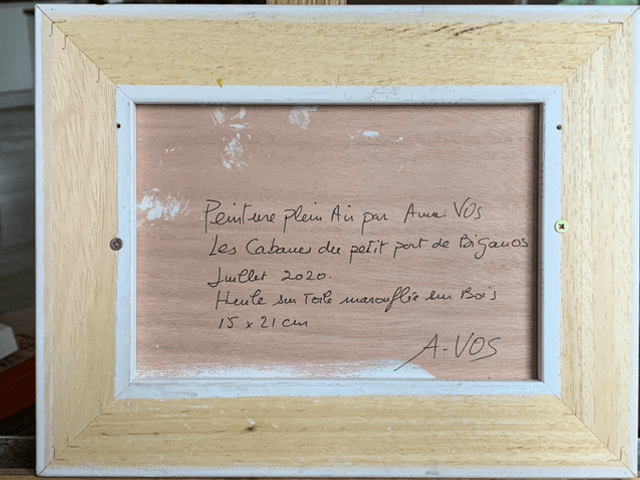 Peinture plein Air par Anna VOS
Les Cabanes du petit port de Biganos
Juillet 2020.
Huile sur Toile marouflée sur Bois
15 x 21 cm
A-VOS